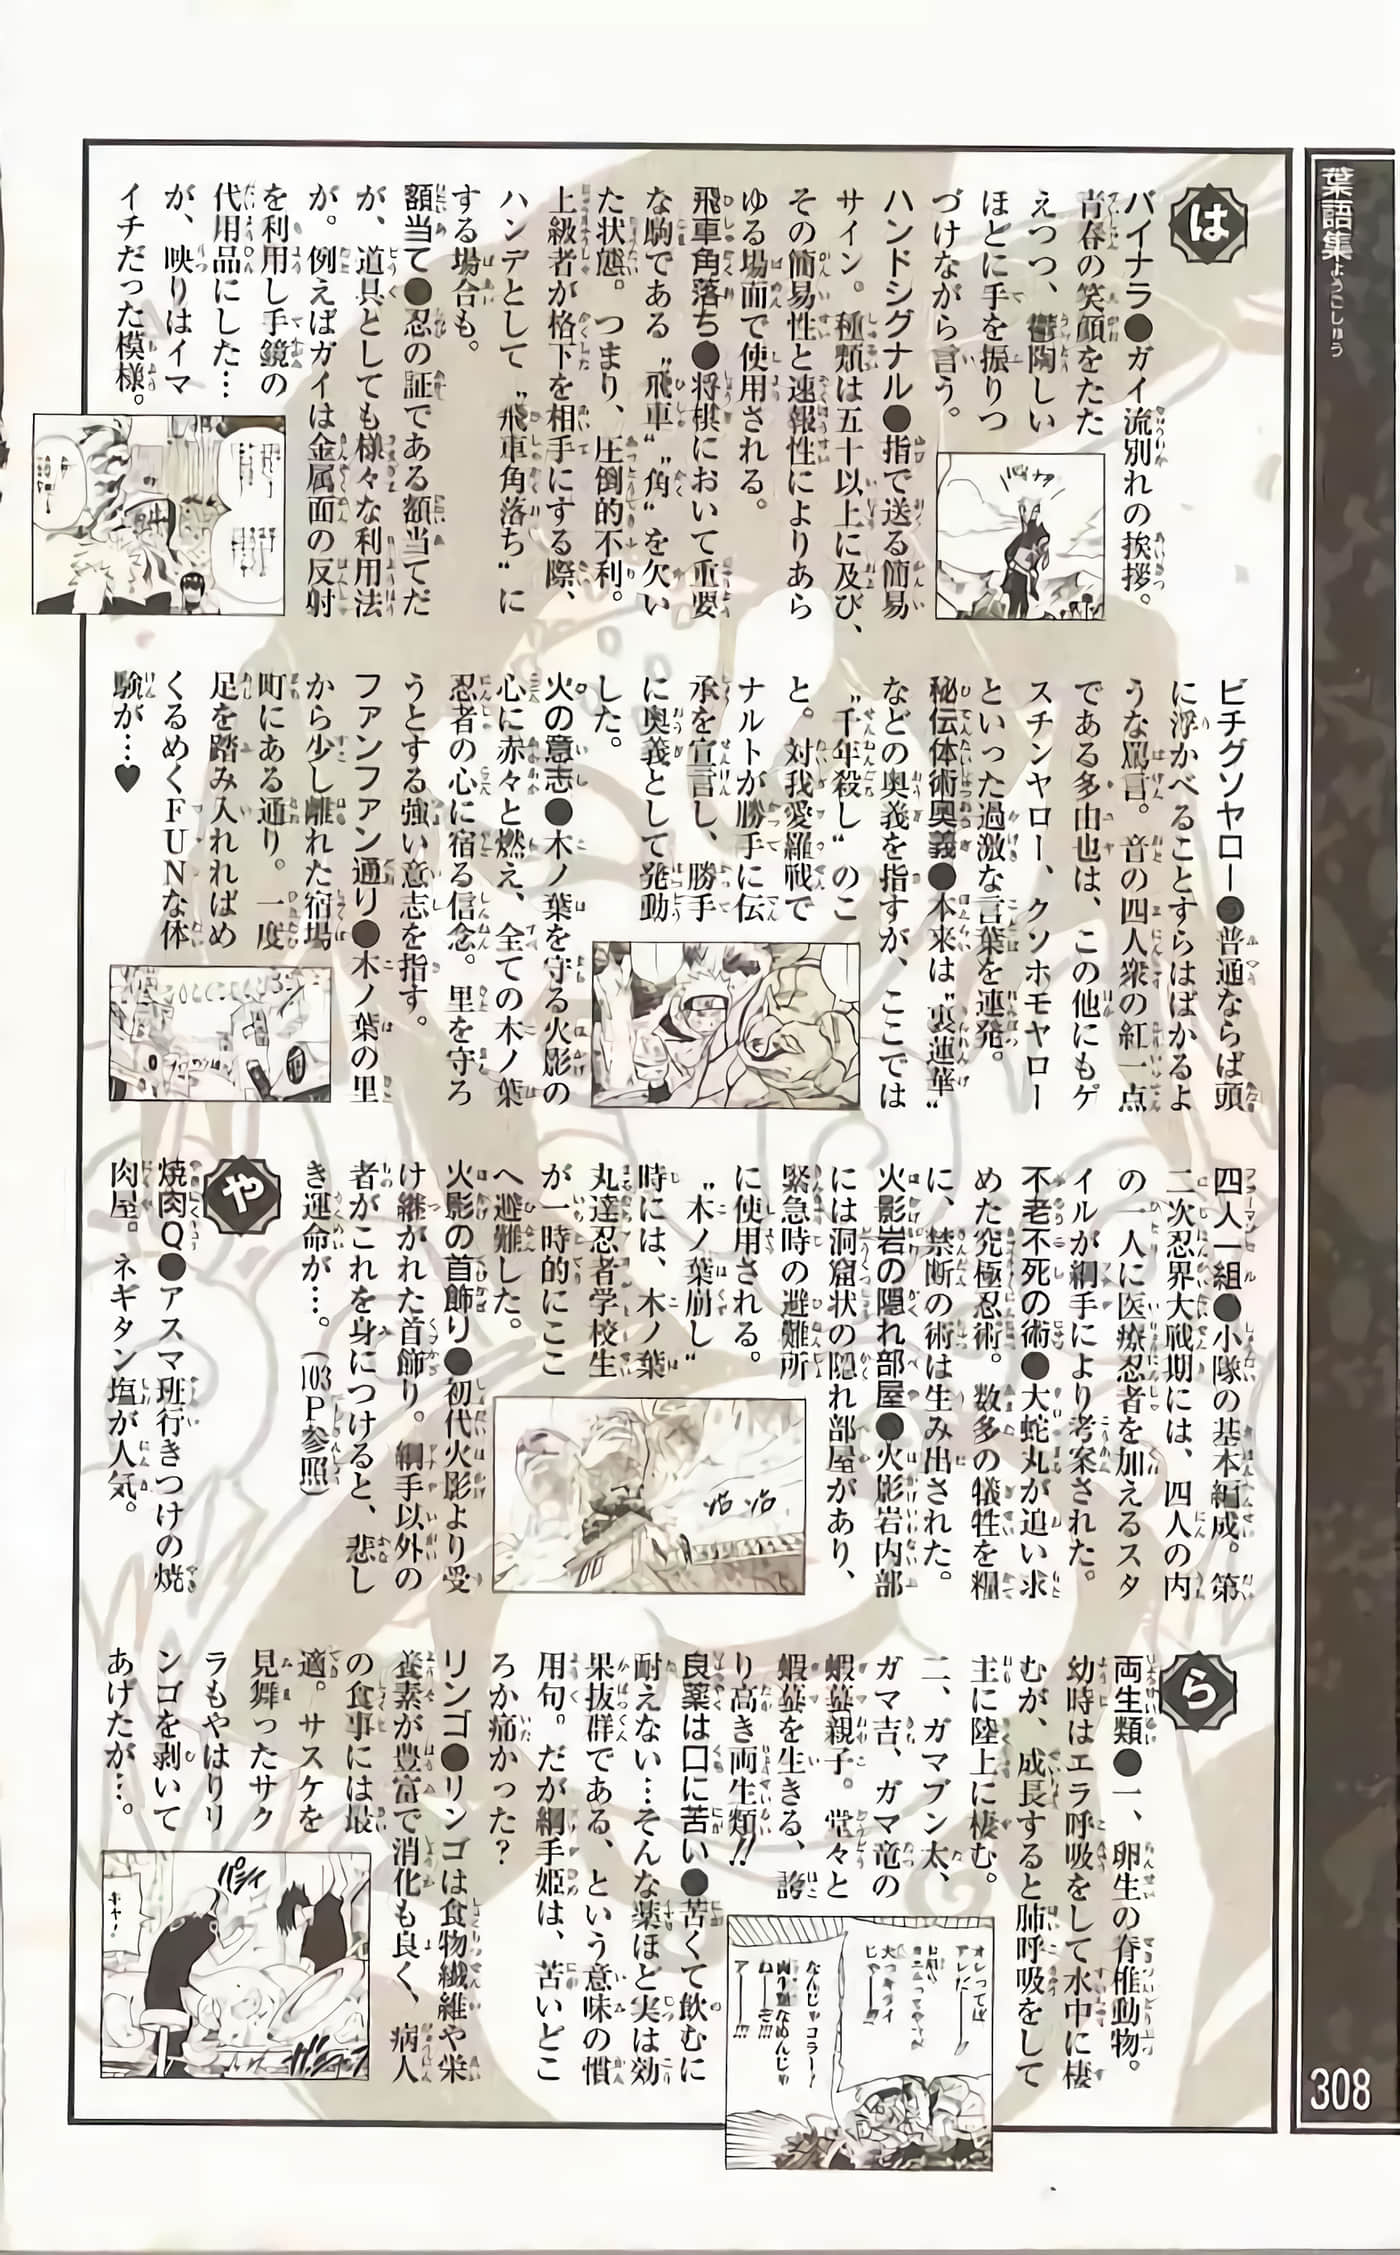 葉語集
ようごしゅう
は
バイナラ●ガイ流別れの挨拶。
青春の笑顔をたた
えつつ、鬱陶しい
ほどに手を振りつ
づけながら言う。
ハンドシグナル●指で送る簡易
サイン。種類は五十以上に及び、
その簡易性と速報性によりあら
ゆる場面で使用される。
飛車角落ち●将棋において重要
な駒である〝飛車〟〝角〟を欠い
た状態。つまり、圧倒的不利。
上級者が格下を相手にする際、
ハンデとして〝飛車角落ち〟に
する場合も。
額当て●忍の証である額当てだ
が、道具としても様々な利用法
が。例えばガイは金属面の反射
を利用し手鏡の
代用品にした…
が、映りはイマ
イチだった模様。
ビチグソヤロー●普通ならば頭
に浮かべることすらはばかるよ
うな罵言。音の四人衆の紅一点
である多由也は、この他にもゲ
スチンヤロー、クソホモヤロー
といった過激な言葉を連発。
秘伝体術奥義●本来は〝裏蓮華〟
などの奥義を指すが、ここでは
〝千年殺し〟のこ
と。対我愛羅戦で
ナルトが勝手に伝
承を宣言し、勝手
に奥義として発動
した。
火の意志●木ノ葉を守る火影の
心に赤々と燃え、全ての木ノ葉
忍者の心に宿る信念。里を守ろ
うとする強い意志を指す。
ファンファン通り●木ノ葉の里
から少し離れた宿場
町にある通り。一度
足を踏み入れればめ
くるめくFUNな体
験が…♥
四人一組●小隊の基本編成。第
二次忍界大戦期には、四人の内
の一人に医療忍者を加えるスタ
イルが綱手により考案された。
不老不死の術●大蛇丸が追い求
めた究極忍術。数多の犠牲を糧
に、禁断の術は生み出された。
火影岩の隠れ部屋●火影岩内部
には洞窟状の隠れ部屋があり、
緊急時の避難所
に使用される。
〝木ノ葉崩し〟
時には、木ノ葉
丸達忍者学校生
が一時的にここ
へ避難した。
火影の首飾り●初代火影より受
け継がれた首飾り。綱手以外の
者がこれを身につけると、悲し
き運命が…。(103P参照)
や
焼肉Q●アスマ班行きつけの焼
肉屋。ネギタン塩が人気。
ら
両生類●一、卵生の脊椎動物。
幼時はエラ呼吸をして水中に棲
むが、成長すると肺呼吸をして
主に陸上に棲む。
二、ガマブン太、
ガマ吉、ガマ竜の
蝦蟇親子。堂々と
蝦蟇を生きる、誇
り高き両生類!!
良薬は口に苦い●苦くて飲むに
耐えない…そんな薬ほど実は効
果抜群である、という意味の慣
用句。だが綱手姫は、苦いどこ
ろか痛かった?
リンゴ●リンゴは食物繊維や栄
養素が豊富で消化も良く、病人
の食事には最
適。サスケを
見舞ったサク
ラもやはりリ
ンゴを剥いて
あげたが…。
パシィ
キャ!
308